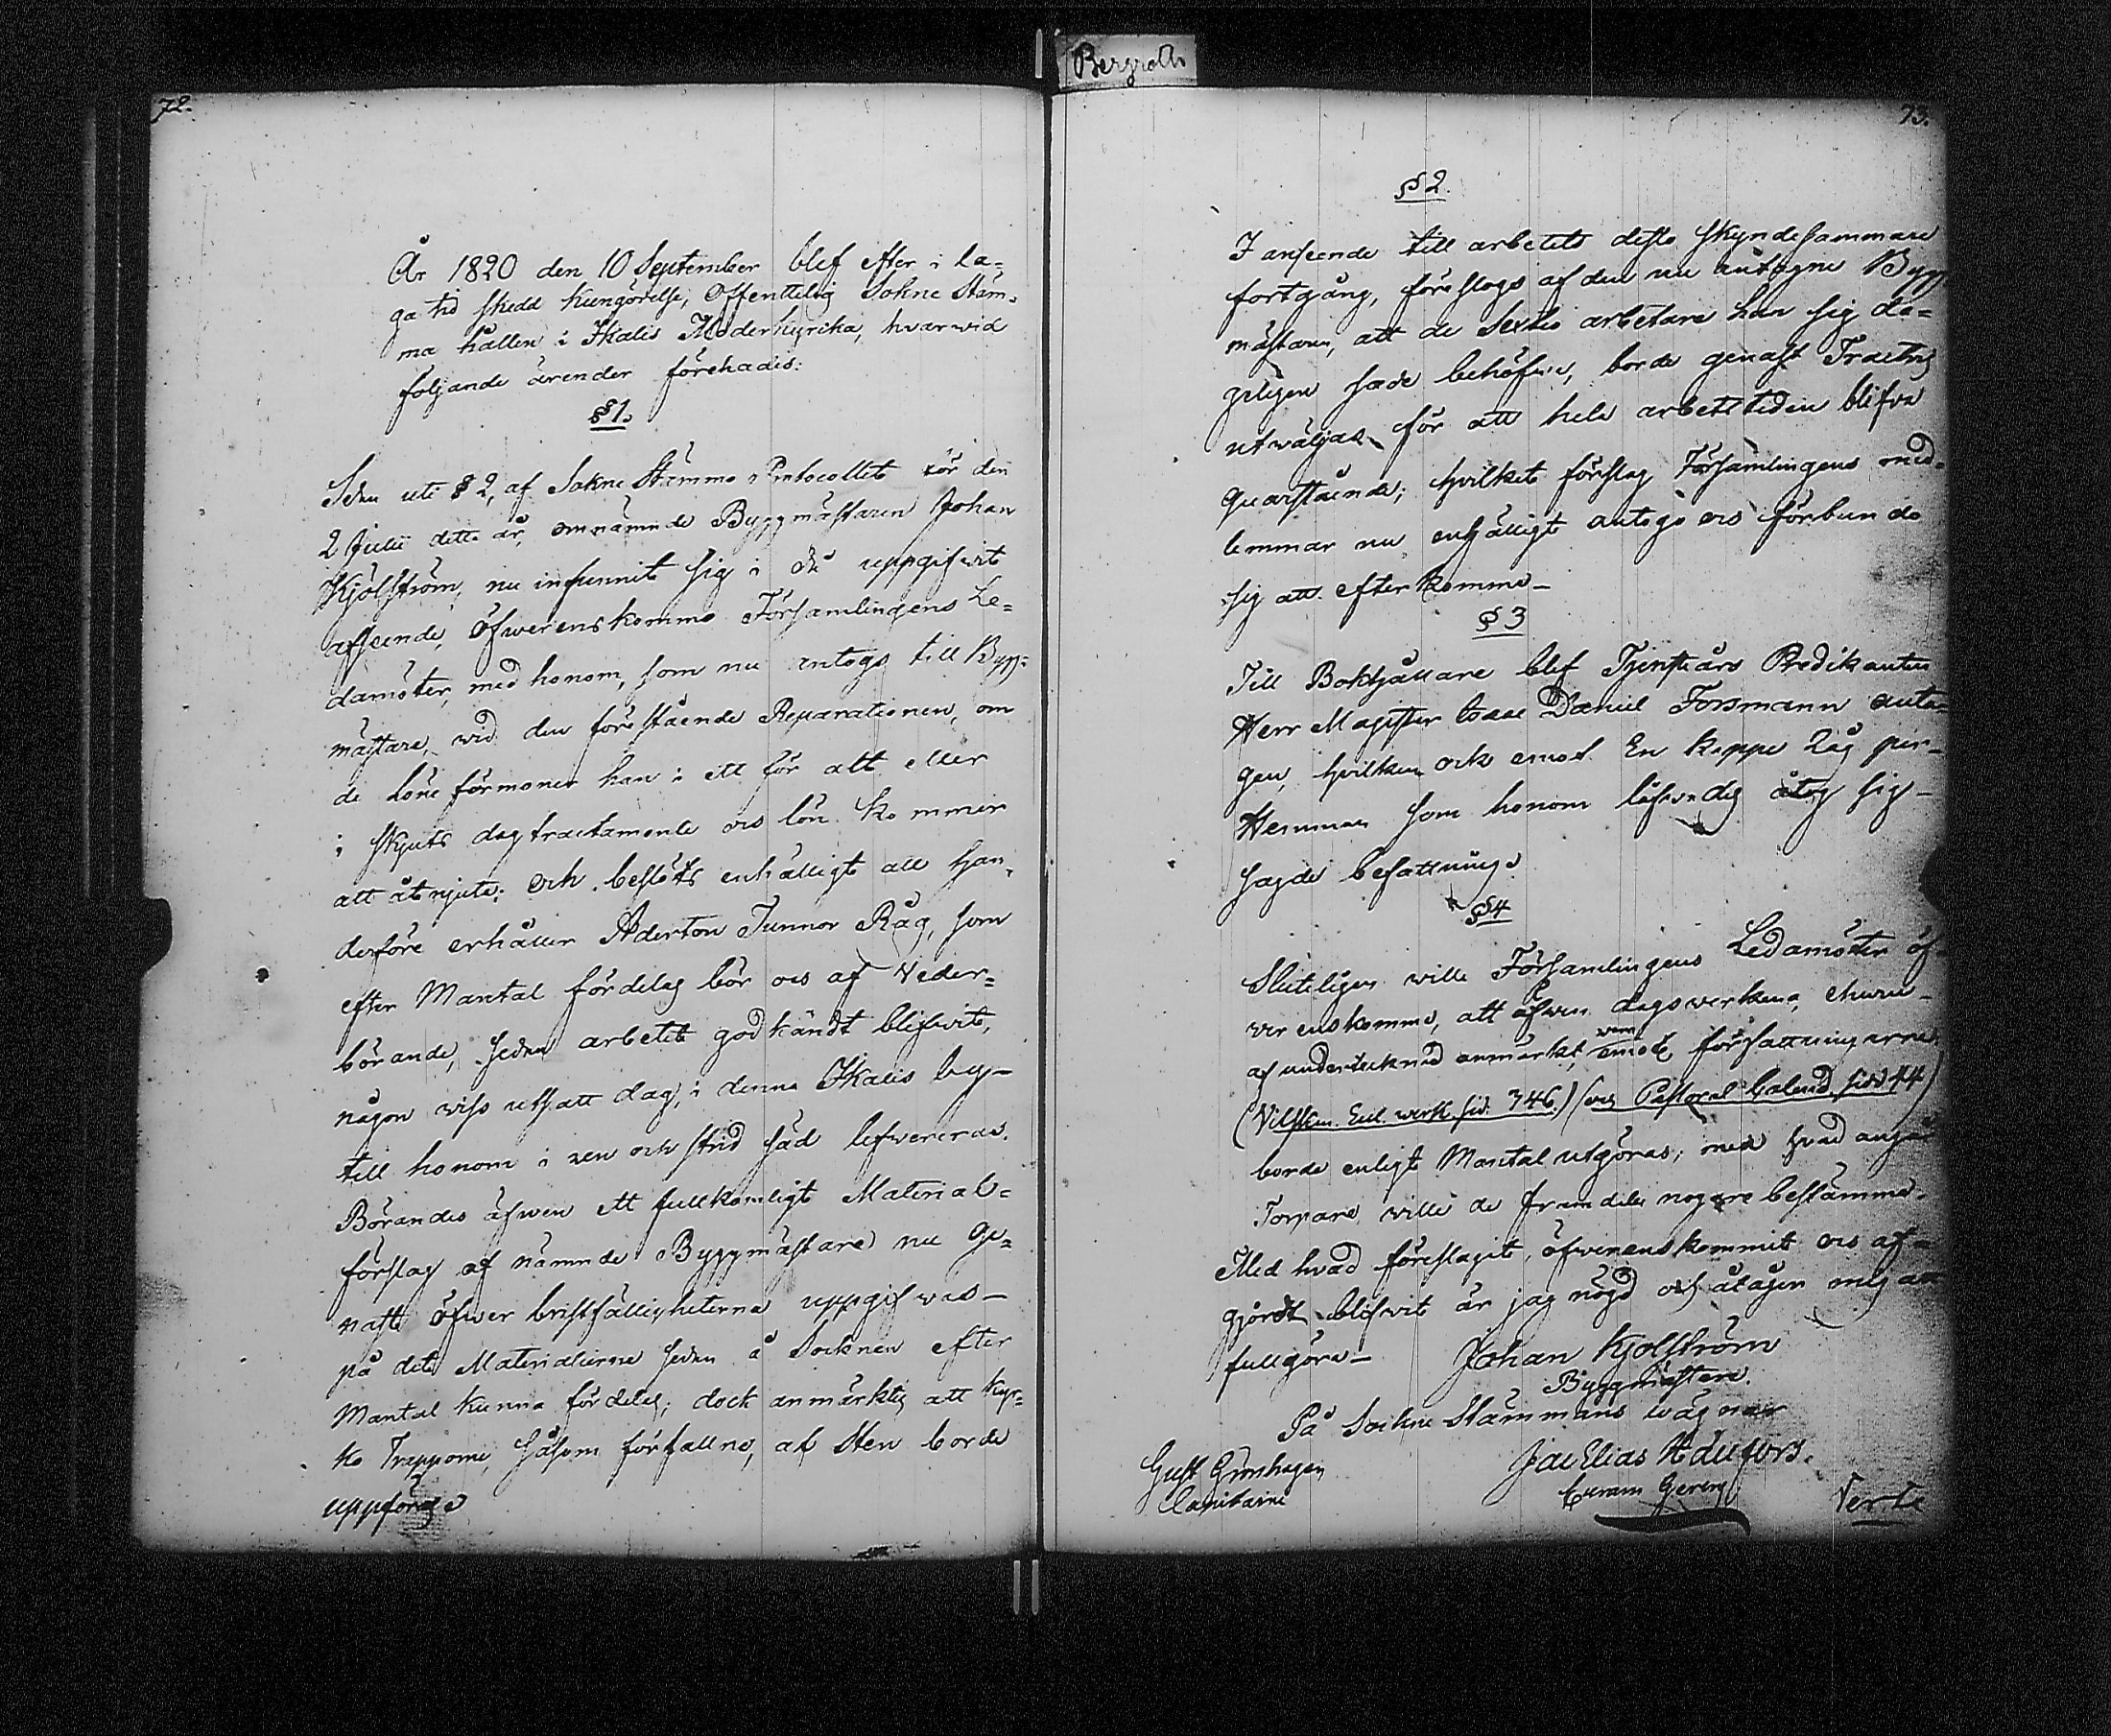 Bergroth
72.
År 1820 den 10 September blef efter i la-
ga tid skedd kungörelse, Offentelig Sokne Stäm-
ma hållen i Ikalis Moderkyrka, hvarwid
följande ärender förehades:
§ 1.
Sedan uti § 2, af Sokne Stämmo Protocollet för den
2 Julii detta år, omnämnde Byggmästaren Johan
Kjölström, nu infunnit sig i då uppgifwit
afseende, öfwerenskommo Församlingens Le-
damöter, med honom, som nu antogs till Bygg-
mästare, wid den förestående Reparationen, om
de löne förmoner han i ett för allt eller
i skjuts dagtractamente och lön kommer
att åtnjuta; och beslöts enhälligt att han,
derföre erhåller Aderton Tunnor Råg, som
efter Mantal fördelas bör och af Veder-
börande, sedan arbetet godkändt blifwit,
någon wiss utsatt dag, i denna Ikalis by-
till honom i ren och strid säd lefwereras.
Börandes äfwen ett fullkomligt Material-
förslag af nämnde Byggmästare nu ge-
nast öfwer bristfälligheterna uppgifwas-
på det Materialierne sedan å Socknen efter
Mantal kunna fördelas; dock anmärktes att kyr-
ko Trapporne, såsom förfallne, af Sten borde
uppföras
73.
§ 2.
I anseende till arbetets desto skyndesammare
fortgång, föreslogs af den nu antagne Bygg
mästaren, att de Sextio arbetare han sig da-
geligen sade behöfwa, borde genast Tractvis
utwäljas för att hela arbetstiden blifva
quarstående; hvilket förslag Församlingens med-
lemmar nu enhälligt antogo och förbundo
sig att efterkomma-
§ 3
Till Bokhållare blef Tjenstårs Predikanten
Herr Magister Isaac Daniel Forsmann anta-
gen, hvilken ock emot En kappe Råg per-
Hemman som honom låfwades åtog sig-
sagde befattning.
§ 4
Sluteligen wille Församlingens Ledamöter öf-
verenskomma, att äfwen dagswerkena, ehuru-
af undertecknad anmärkt, emot författningarna
(Vilskm. Eccl. werk. sid. 746.) (och Pastoral Calend. sid 44)
borde enligt Mantal utgöras; med hvad angår
Torpare, wille de framdeles nogare bestämma.
Med hvad föreslagit, öfwerenskommit och af-
gjordt blifwit är jag nögd och åtager mig att
fullgöra- Johan Kjölström
Byggmästare.
På Sockne Stämmans wägnar
Gust Grönhagen
Capitaine
Jac Elias Adufors.
Curam Gerens
Verte